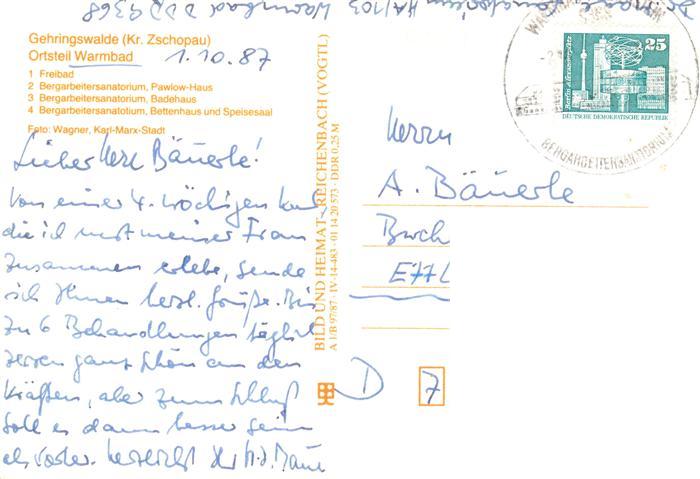 Sanatorium HA/103 Warmbad DDR 9368
Gehringswalde (Kr. Zschopau)
Ortsteil Warmbad
1.10.87
1 Freibad
2 Bergarbeitersanatorium, Pawlow-Haus
3 Bergarbeitersanatorium, Badehaus
4 Bergarbeitersanatorium, Bettenhaus und Speisesaal
Foto: Wagner, Karl-Marx-Stadt
Lieber Herr Bäuerle!
Von einer 4-wöchigen Kur
die ich mit meiner Frau
zusammen erlebe, sende
ich Ihnen herzl. Grüße. Bis
zu 6 Behandlungen täglich
zerren ganz schön an den
Kräften, aber zum Schluß
soll es dann besser sein
als vorher. Herzlichst Ihr
BILD UND HEIMAT · REICHENBACH (VOGTL)
A 1/B 97/87 · IV-14-483 · 01 14 20 573 · DDR 0,25 M
25
Berlin, Alexanderplatz
DEUTSCHE DEMOKRATISCHE REPUBLIK
BERGARBEITERSANATORIUM
Herrn
A. Bäuerle
Buch
D
7